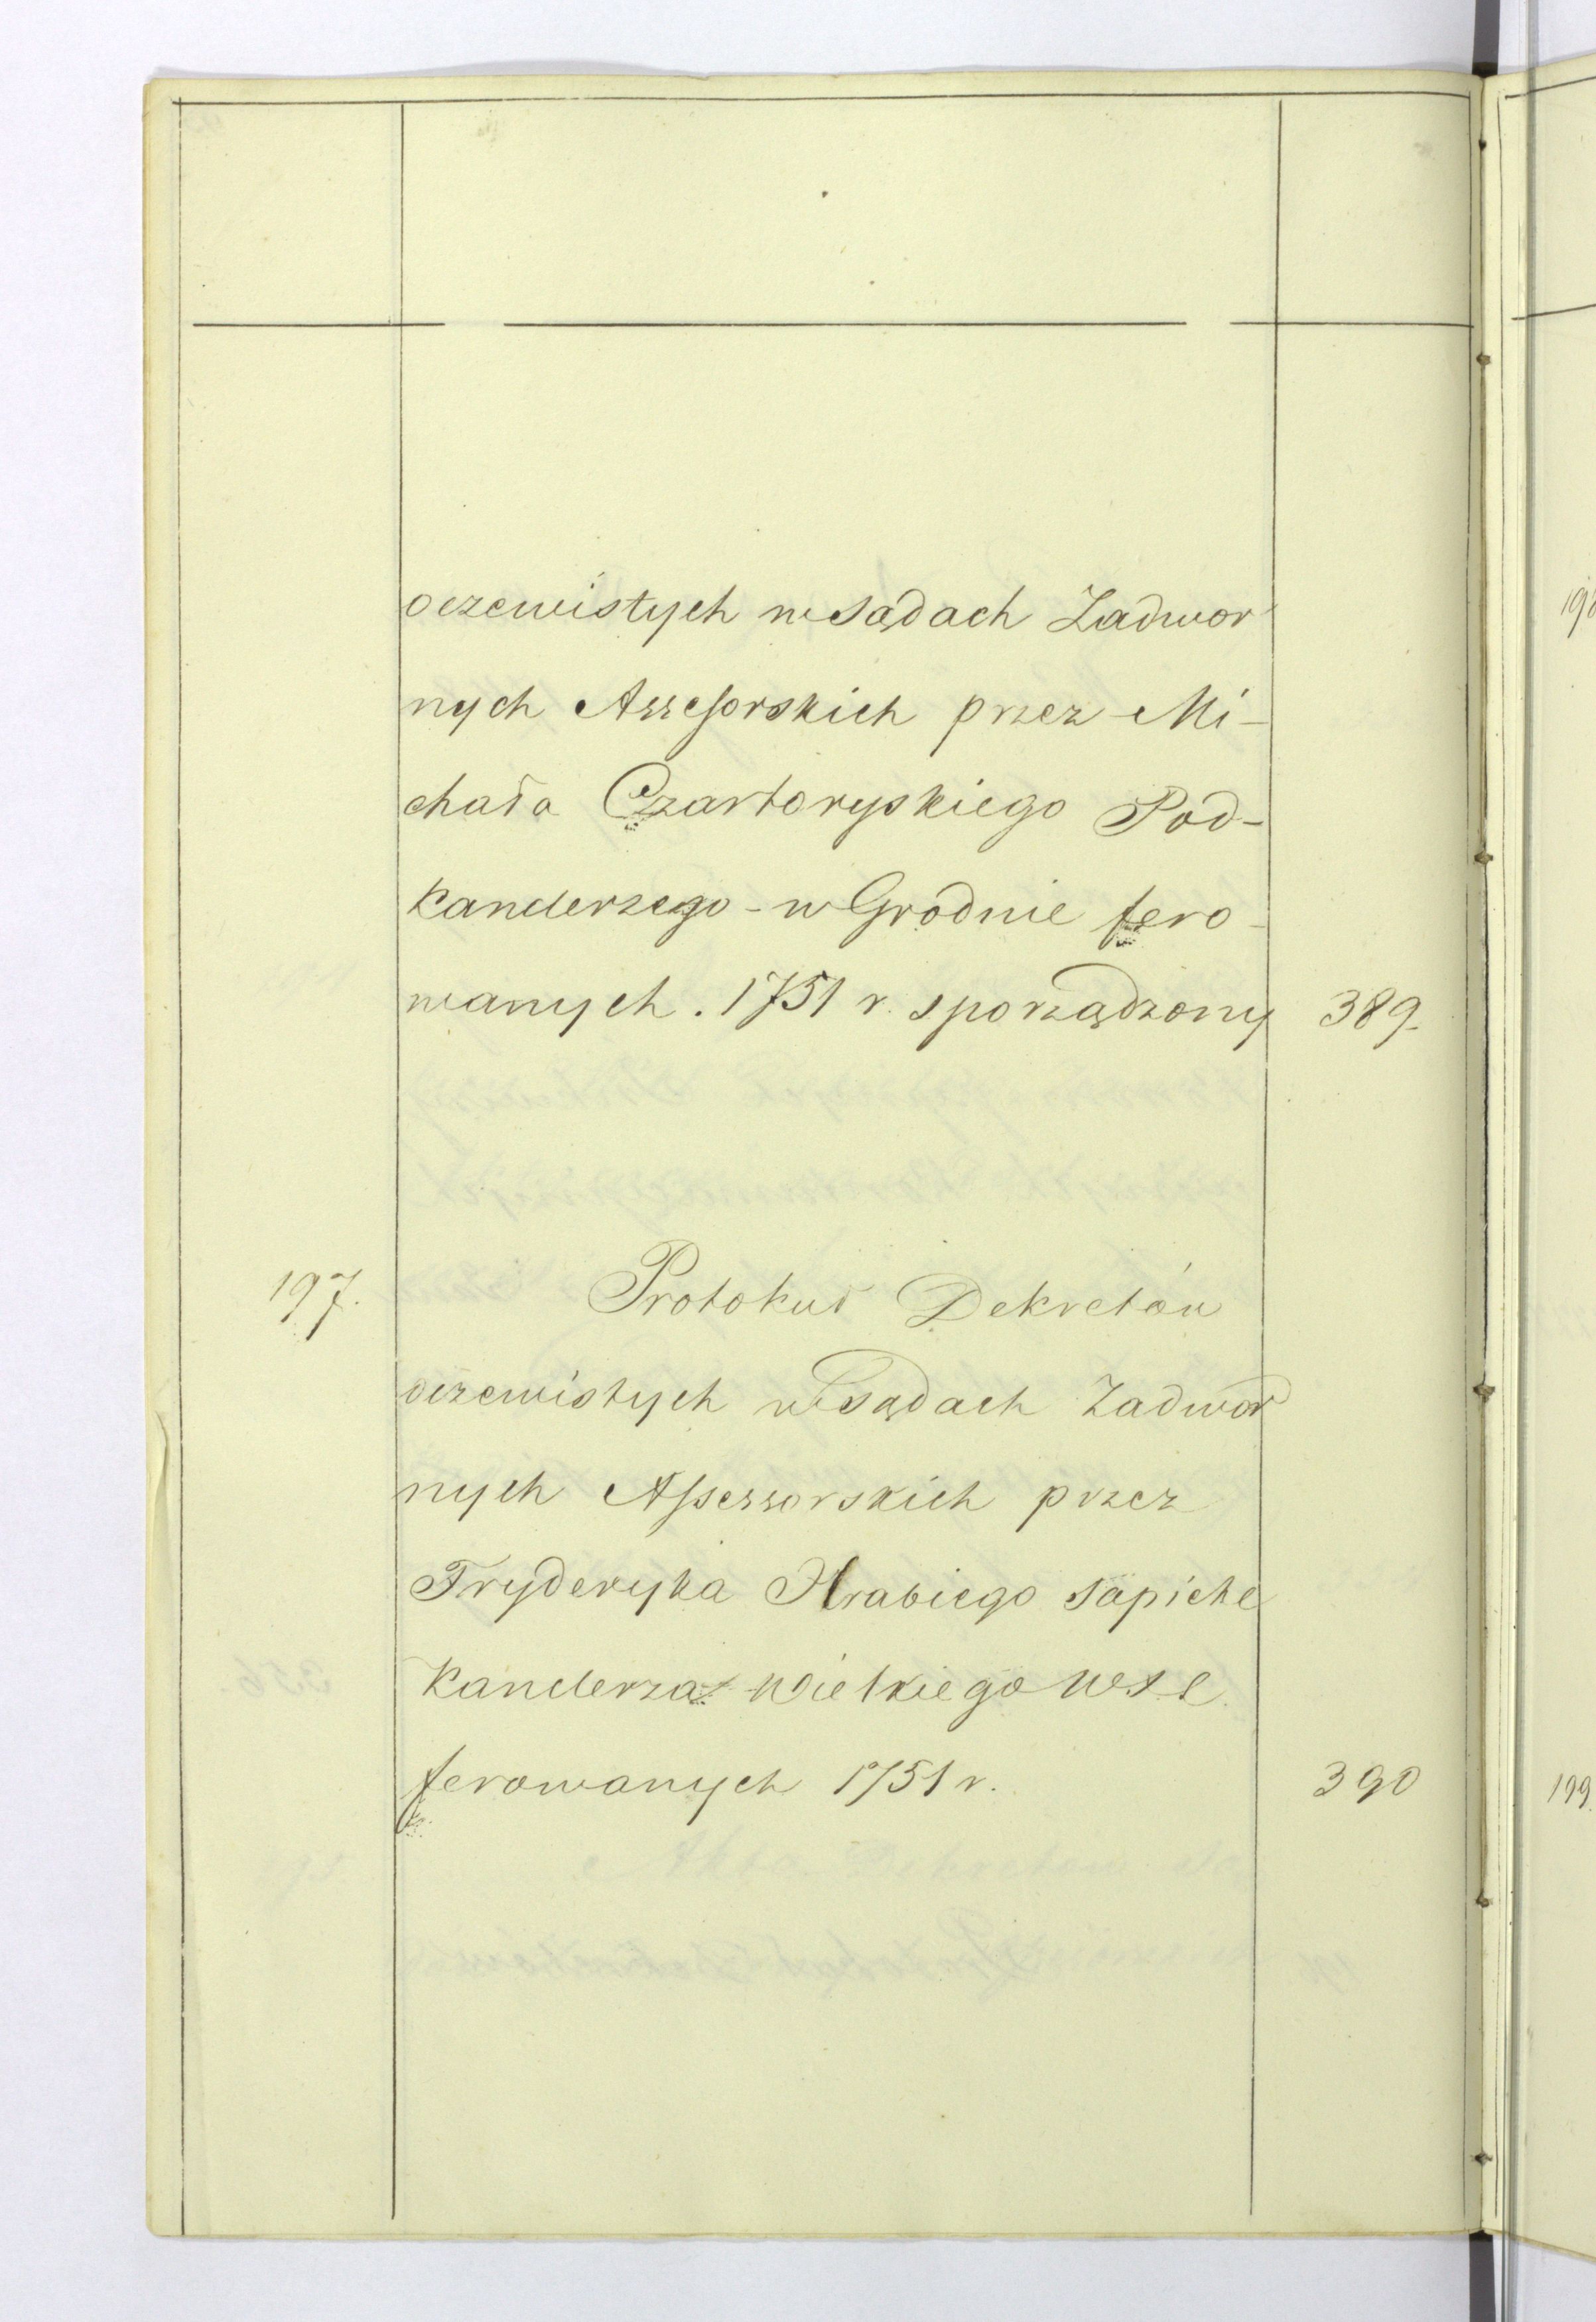 oczewistych w Sądach Zadwor
nych Assesorskich przez Mi-
chała Czartoryskiego Pod-
kanclerzego - w Grodnie fero-
wanych. 1751 r. sporządzony 389.
197. Protokuł Dekretów
oczewistych w Sądach Zadwor
nych Assessorskich przez
Fryderyka Hrabiego Sapiehe
Kanclerza Wielkiego
ferowanych 1751 r. 390
199.